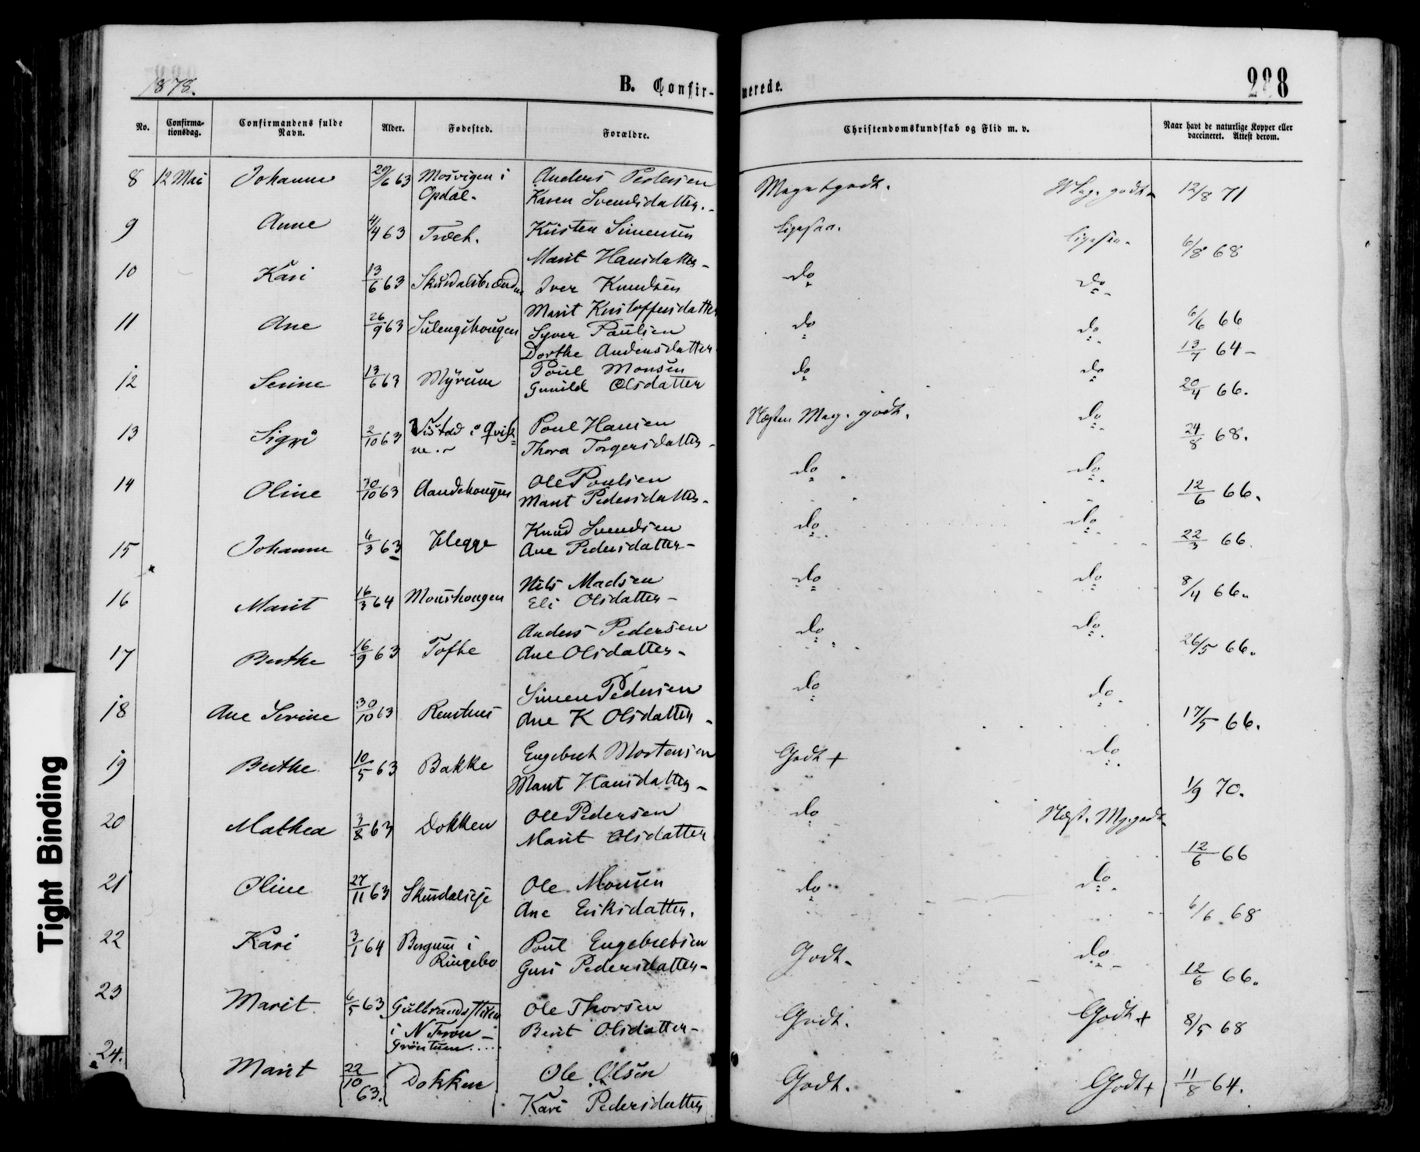 1878.
B. Confirmerede.
228
No. Confirmationsdag. Confirmandens fulde Navn. Alder. Fødested. Forældre. Christendomskundskab og Flid m. v. Naar havt de naturlige Kopper eller vaccineret. Attest derom.
8 12 Mai Johanne 29/6 63 Mosvigen i Anders Pedersen Meget godt. Meg. godt 12/8 71
Opdal. Karen Svendsdatter.
9 Anne 4/4 63 Kristen Simensen Ligesaa. Ligesaa. 6/8 68
Marit Hansdatter
10 Kari 13/6 63 Iver Knudsen do do
Marit Kristoffersdatter 6/6 66
11 Ane 26/9 63 Sulengshougen Syver Paulsen do do
Dorthe Andersdatter 13/7 64
12 Serine 13/6 63 Myrum Poul Monsen do do
Gunild Olsdatter 20/4 66.
13 Sigri 2/10 63 Vistad i Qvik- Poul Hansen Næsten Meg. godt. do
ne. Thora Torgersdatter 24/8 68.
14 Oline 30/10 63 Aandehougen Ole Poulsen do do
Marit Pedersdatter 12/6 66.
15 Johanne 6/3 63 Klegge Knud Svendsen do do
Ane Pedersdatter 22/3 66.
16 Marit 16/3 64 Monshougen Nils Madsen do do 8/4 66.
Eli Olsdatter
17 Berthe 16/9 63 Tofte Anders Pedersen do do
Ane Olsdatter 26/5 66.
18 Ane Serine 30/10 63 Simen Pedersen do do
Ane K Olsdatter 17/5 66.
19 Berthe 10/5 63 Bakke Engebret Mortensen Godt + do
Marit Hansdatter 1/9 70.
20 Mathea 3/8 63 Dokken Ole Pedersen do Næst. Mg. godt
Marit Olsdatter 12/6 66
21 Oline 27/11 63 Skurdalseje Ole Monsen do do
Ane Eriksdatter. 6/6 68
22 Kari 3/1 64 i Poul Engebretsen Godt do
Ringebo Guri Pedersdatter 12/6 66.
23 Marit 6/5 63 Ole Thorsen Godt. Godt + 8/5 68
i N. Fron Berit Olsdatter
24. Marit 22/10 63. Dokken Ole Olsen Godt. Godt + 11/8 64.
Kari Pedersdatter
Tight Binding